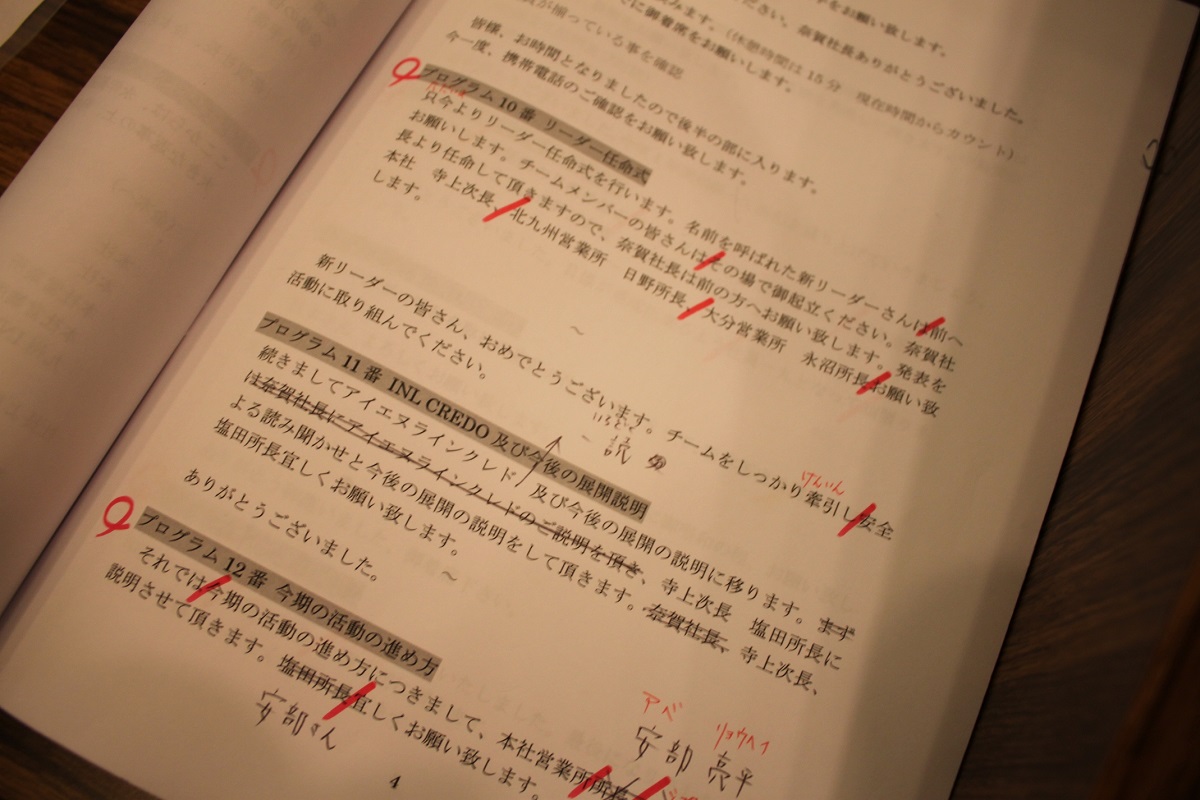 をお願い致します。
ださい。奈賀社長ありがとうございました。
みます。（休憩時間は15分　現在時間からカウント）
でに御着席をお願いします。
が揃っている事を確認
皆様、お時間となりましたので後半の部に入ります。
今一度、携帯電話のご確認をお願い致します。
プログラム10番 リーダー任命式
只今よりリーダー任命式を行います。名前を呼ばれた新リーダーさんは前へ
お願いします。チームメンバーの皆さんはその場で御起立ください。奈賀社
長より任命して頂きますので、奈賀社長は前の方へお願い致します。発表を
本社　寺上次長、北九州営業所　日野所長、大分営業所　永沼所長お願い致
します。
～
新リーダーの皆さん、おめでとうございます。チームをしっかり牽引し安全
けんいん
活動に取り組んでください。
～
プログラム11番 INL CREDO 及び今後の展開説明
続きましてアイエヌラインクレド 及び今後の展開の説明に移ります。まず
は奈賀社長にアイエヌラインクレドのご説明を頂き、寺上次長　塩田所長に
よる読み聞かせと今後の展開の説明をして頂きます。奈賀社長、寺上次長、
塩田所長宜しくお願い致します。
～
ありがとうございました。
プログラム12番 今期の活動の進め方
それでは今期の活動の進め方につきまして、本社営業所
説明させて頂きます。塩田所長宜しくお願い致します。
安部さん
アベ　リョウヘイ
安部 亮平
4